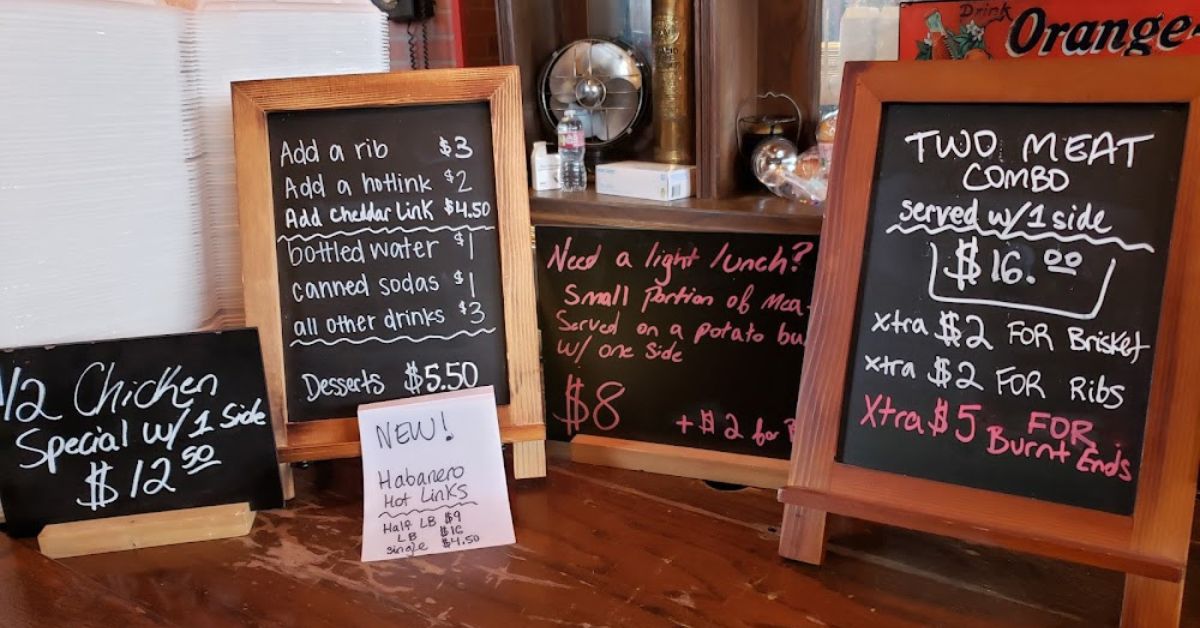 1/2 Chicken
Special w/1 Side
$12.50
Add a rib $3
Add a hotlink $2
Add cheddar Link $4.50
bottled water $1
canned sodas $1
all other drinks $3
Desserts $5.50
NEW!
Habanero
Hot Links
Half LB $9
LB
Single $4.50
Need a light lunch?
Small Portion of Mea
Served on a potato bu
w/ one Side
$8
+ $2 for
Drink
Orange-
TWO MEAT
COMBO
served w/1 side
$16.00
xtra $2 FOR Brisket
xtra $2 FOR Ribs
Xtra $5 FOR
Burnt Ends